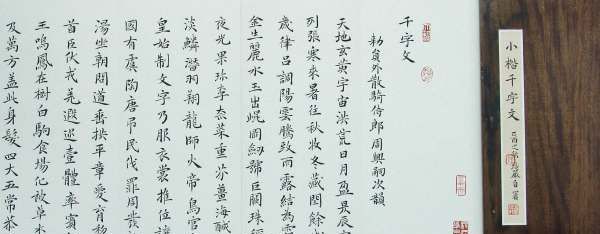 小楷千字文
千字文
勅員外散騎侍郎周興嗣次韻
天地玄黃宇宙洪荒日月盈昃辰
列張寒來暑往秋收冬藏閏餘
歲律呂調陽雲騰致雨露結為
金生麗水玉出崐岡劍號巨闕珠
夜光果珍李柰菜重芥薑海鹹
淡鱗潛羽翔龍師火帝鳥官
皇始制文字乃服衣裳推位讓
國有虞陶唐吊民伐罪周發
湯坐朝問道垂拱平章愛育
首臣伏戎羌遐邇壹體率賓
王鳴鳳在樹白駒食場化被草木
及萬方蓋此身髮四大五常恭